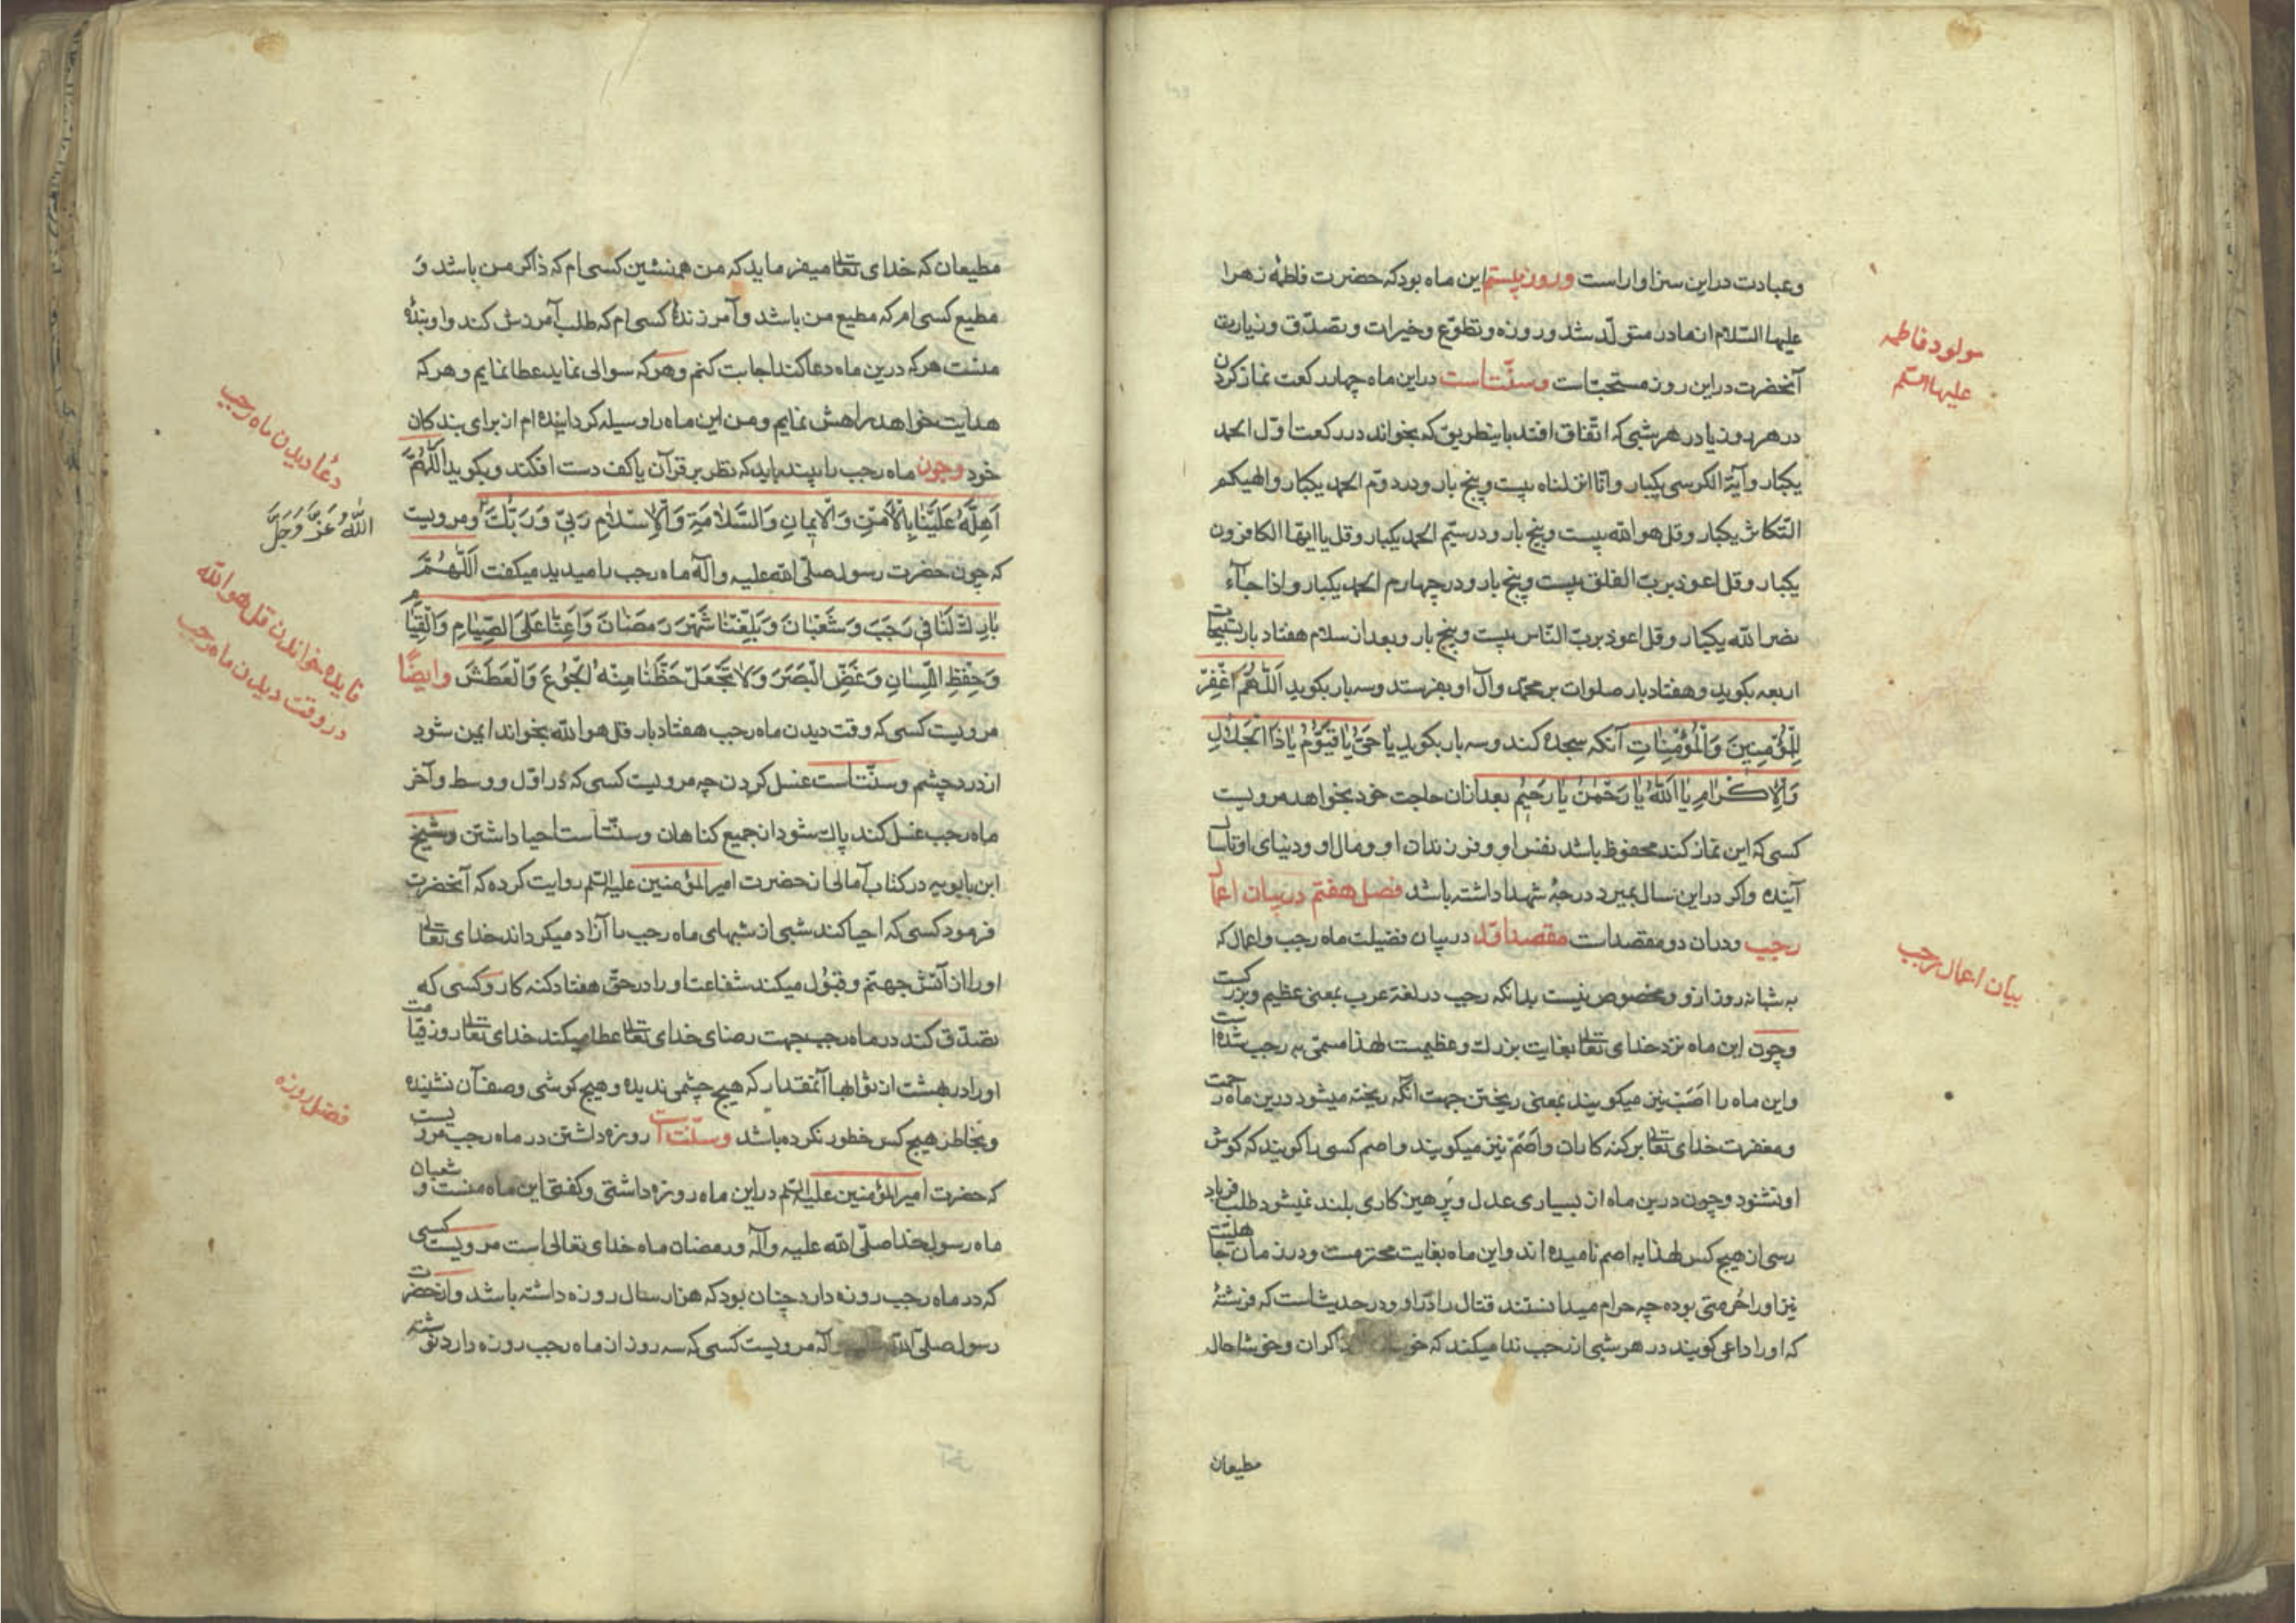 وعبادت در این سزاوار است وروز بیستم این ماه بود که حضرت فاطمهٔ زهرا
علیها السّلام از مادر متولّد شد و روزه و تطوّع و خیرات و تصدّق و زیارت
آنحضرت در این روز مستحبّ است وسنّت است در این ماه چهار رکعت نماز کردن
در هر روز یا در هر شبی که اتّفاق افتد باینطریق که بخواند در رکعت اوّل الحمد
یکبار و آیة الکرسی یکبار و انّا انزلناه بیست و پنج بار و در دوّم الحمد یکبار و الهیکم
التّکاثر یکبار و قل هو الله بیست و پنج بار و در سیّم الحمد یکبار و قل یا ایّها الکافرون
یکبار و قل اعوذ بربّ الفلق بیست و پنج بار و در چهارم الحمد یکبار و اذا جآء
نصر الله یکبار و قل اعوذ بربّ النّاس بیست و پنج بار و بعد از سلام هفتاد بار تسبیحات
اربعه بکوید و هفتاد بار صلوات بر محمّد و آل او بفرستد و سه بار بکوید اَللّٰهُمَّ اغْفِرْ
لِلْمُؤْمِنِینَ وَالْمُؤْمِنٰاتِ آنکه سجده کند و سه بار بکوید یٰا حَیُّ یٰا قَیُّوْمُ یٰا ذَا الْجَلاٰلِ
وَالْاِکْرٰامِ یٰا اَللّٰهُ یٰا رَحْمٰنُ یٰا رَحِیْمُ بعد از ان حاجت خود بخواهد مرویست
کسی که این نماز کند محفوظ باشد نفس او و فرزندان او و مال او و دنیای او تا سال
آینده واکر در این سال بمیرد درجهٔ شهدا داشته باشد فصل هفتم در بیان اعمال
رجب ودران دو مقصد است مقصد اوّل در بیان فضیلت ماه رجب واعمال که
به شبانه روز ازو مخصوص نیست بدانکه رجب در لغة عرب بمعنی عظیم و بزرکست
وچون این ماه نزد خدای تعالی بغایت بزرك و عظیمست لهذا مسمّی به رجب شده است
واین ماه را اَصَبّ نیز میکویند بمعنی ریختن جهت آنکه ریخته میشود درین ماه رحمت
ومغفرت خدای تعالی بر کنه کاران و اَصَمّ نیز میکویند و اصم کسی را کویند که کوش
او نشنود و چون درین ماه از بسیاری عدل و پرهیزکاری بلند نمیشود طلب فریاد
رسی از هیچ کس لهذا به اصم نامیده اند و این ماه بغایت محترمست و در زمان جاهلیّت
نیز او را حُرمتی بوده چه حرام میدانستند قتال را در او و در حدیث است که فرشتهٔ
که او را داعی کویند در هر شبی از رجب ندا میکند که ذاکران و خوشا حال
مطیعان
مولود فاطمه
علیها السّلم
بیان اعمال رجب
مطیعان که خدای تعالی میفرماید که من همنشین کسی ام که ذاکر من باشد و
مطیع کسی ام که مطیع من باشد و آمرزندهٔ کسی ام که طلب آمرزش کند و او بندهٔ
منست هر که درین ماه دعا کند اجابت کنم وهر که سوالی نماید عطا نمایم و هر که
هدایت خواهد راهش نمایم و من این ماه را وسیله کردانیده ام از برای بندکان
خود وچون ماه رجب را بیند باید که نظر بر قرآن یا کف دست افکند و بکوید اَللّٰهُمَّ
اَهِلَّهُ عَلَیْنٰا بِالْاَمْنِ وَالْاِیمٰانِ وَالسَّلاٰمَةِ وَالْاِسْلاٰمِ رَبّیْ وَرَبُّكَ ومرویست
که چون حضرت رسول صلّی الله علیه و آله ماه رجب را میدید میکفت اَللّٰهُمَّ
بٰارِكْ لَنٰا فِی رَجَبَ وَشَعْبٰانَ وَبَلِّغْنٰا شَهْرَ رَمَضٰانَ وَاَعِنّٰا عَلَی الصِّیٰامِ وَالْقِیٰامِ
وَحِفْظِ اللِّسٰانِ وَغَضِّ الْبَصَرِ وَلاٰ تَجْعَلْ حَظَّنٰا مِنْهُ الْجُوْعَ وَالْعَطَشَ وایضًا
مرویست کسی که وقت دیدن ماه رجب هفتاد بار قل هو الله بخواند ایمن شود
از درد چشم وسنّت است غسل کردن چه مرویست کسی که در اوّل و وسط و آخر
ماه رجب غسل کند پاك شود از جمیع کناهان وسنّت است احیا داشتن وشیخ
ابن بابویه در کتاب آمالی از حضرت امیر المؤمنین علیه السّلم روایت کرده که آنحضرت
فرمود کسی که احیا کند شبی از شبهای ماه رجب را آزاد میکرداند خدای تعالی
او را از آتش جهنّم و قبول میکند شفاعت او را در حقّ هفتاد کنه کار و کسی که
تصدّق کند در ماه رجب جهت رضای خدای تعالی عطا میکند خدای تعالی روز قیامت
او را در بهشت از ثوابها آنمقدار که هیچ چشمی ندیده و هیچ کوشی وصف آن نشنیده
وبخاطر هیچ کس خطور نکرده باشد وسنّت است روزه داشتن در ماه رجب مرویست
که حضرت امیر المؤمنین علیه السّلم در این ماه روزه داشتی و کفتی این ماه منست و شعبان
ماه رسول خدا صلّی الله علیه و آله و رمضان ماه خدای تعالی است مرویست کسی
که در ماه رجب روزه دارد چنان بود که هزار سال روزه داشته باشد واز حضرت
رسول صلّی الله علیه وآله مرویست کسی که سه روز از ماه رجب روزه دارد نوشته
دعُا دیدن ماه رجب
اللّٰهُ عَزَّ وَجَلَّ
فایده خواندن قل هو الله
در وقت دیدن ماه رجب
فضل روزه